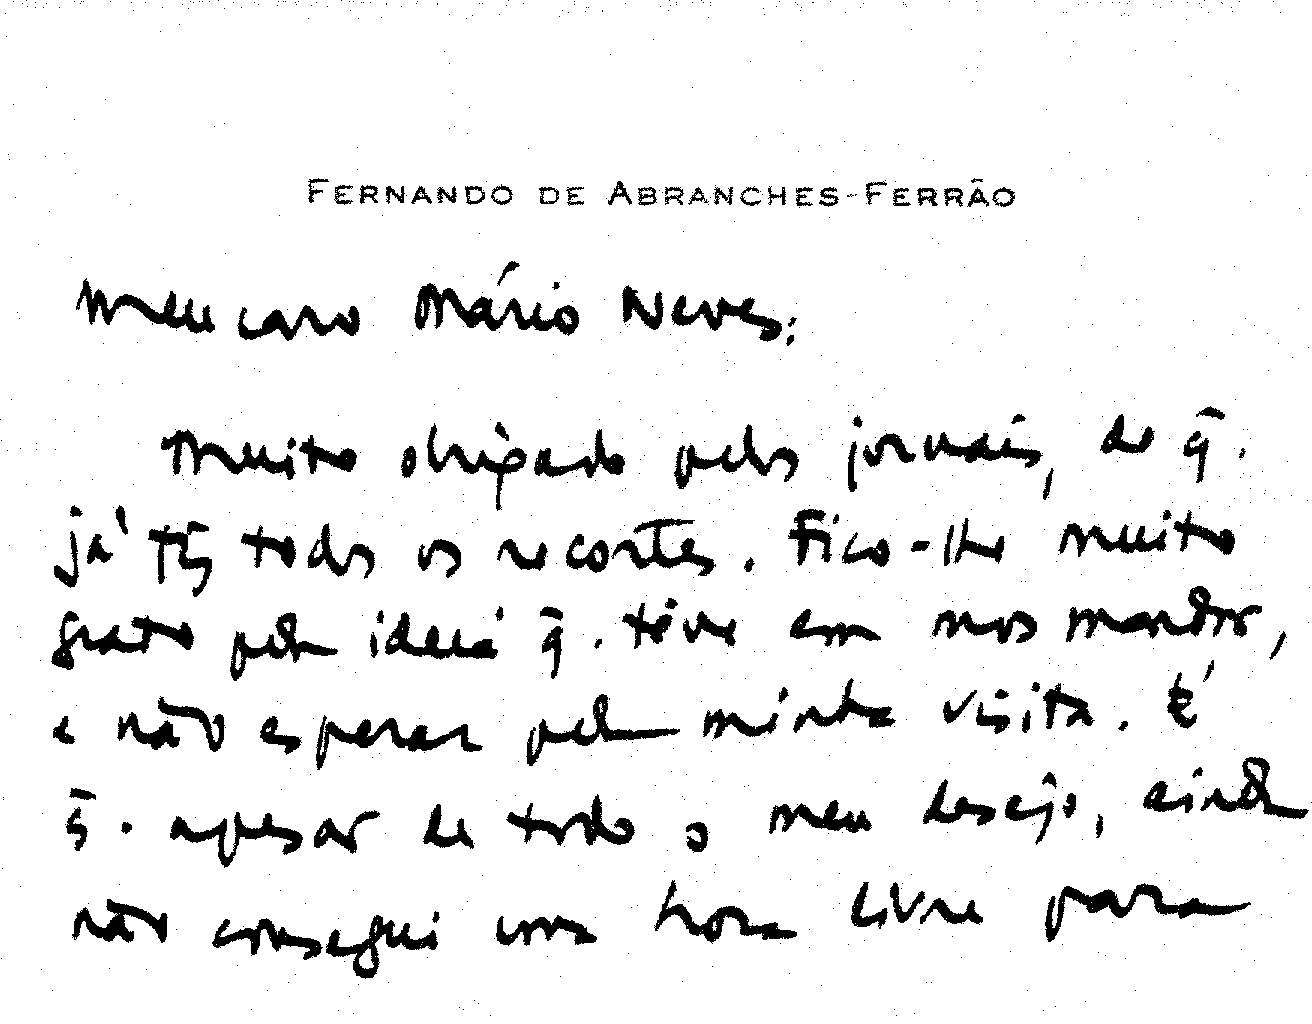 FERNANDO DE ABRANCHES-FERRÃO
Meu caro Mário Neves:
Muito obrigado pelos jornais, de q̃.
já todos os recortes. Fico-lhe muito
grato pela ideia q̃. teve em nos mandar,
e não esperar pela minha visita. É
q̃. apesar de todo o meu desejo, ainda
não consegui uma hora livre para